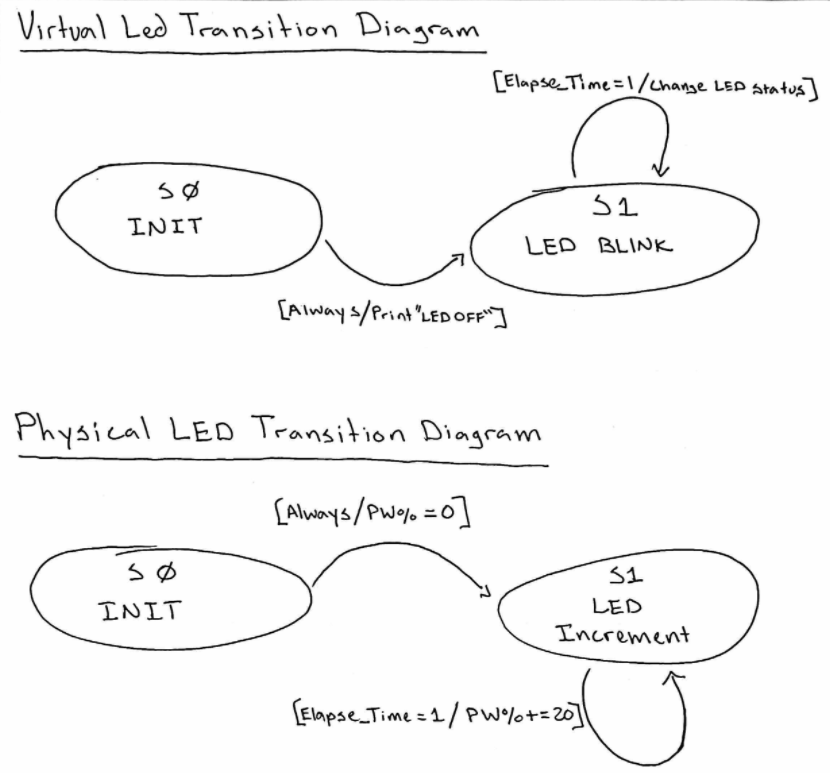 Virtual Led Transition Diagram
[Elapse_Time=1/Change LED Status]
SØ
INIT
S1
LED BLINK
[Always/Print"LED OFF"]
Physical LED Transition Diagram
[Always/PW%=0]
SØ
INIT
S1
LED
Increment
[Elapse_Time=1/PW%+=20]